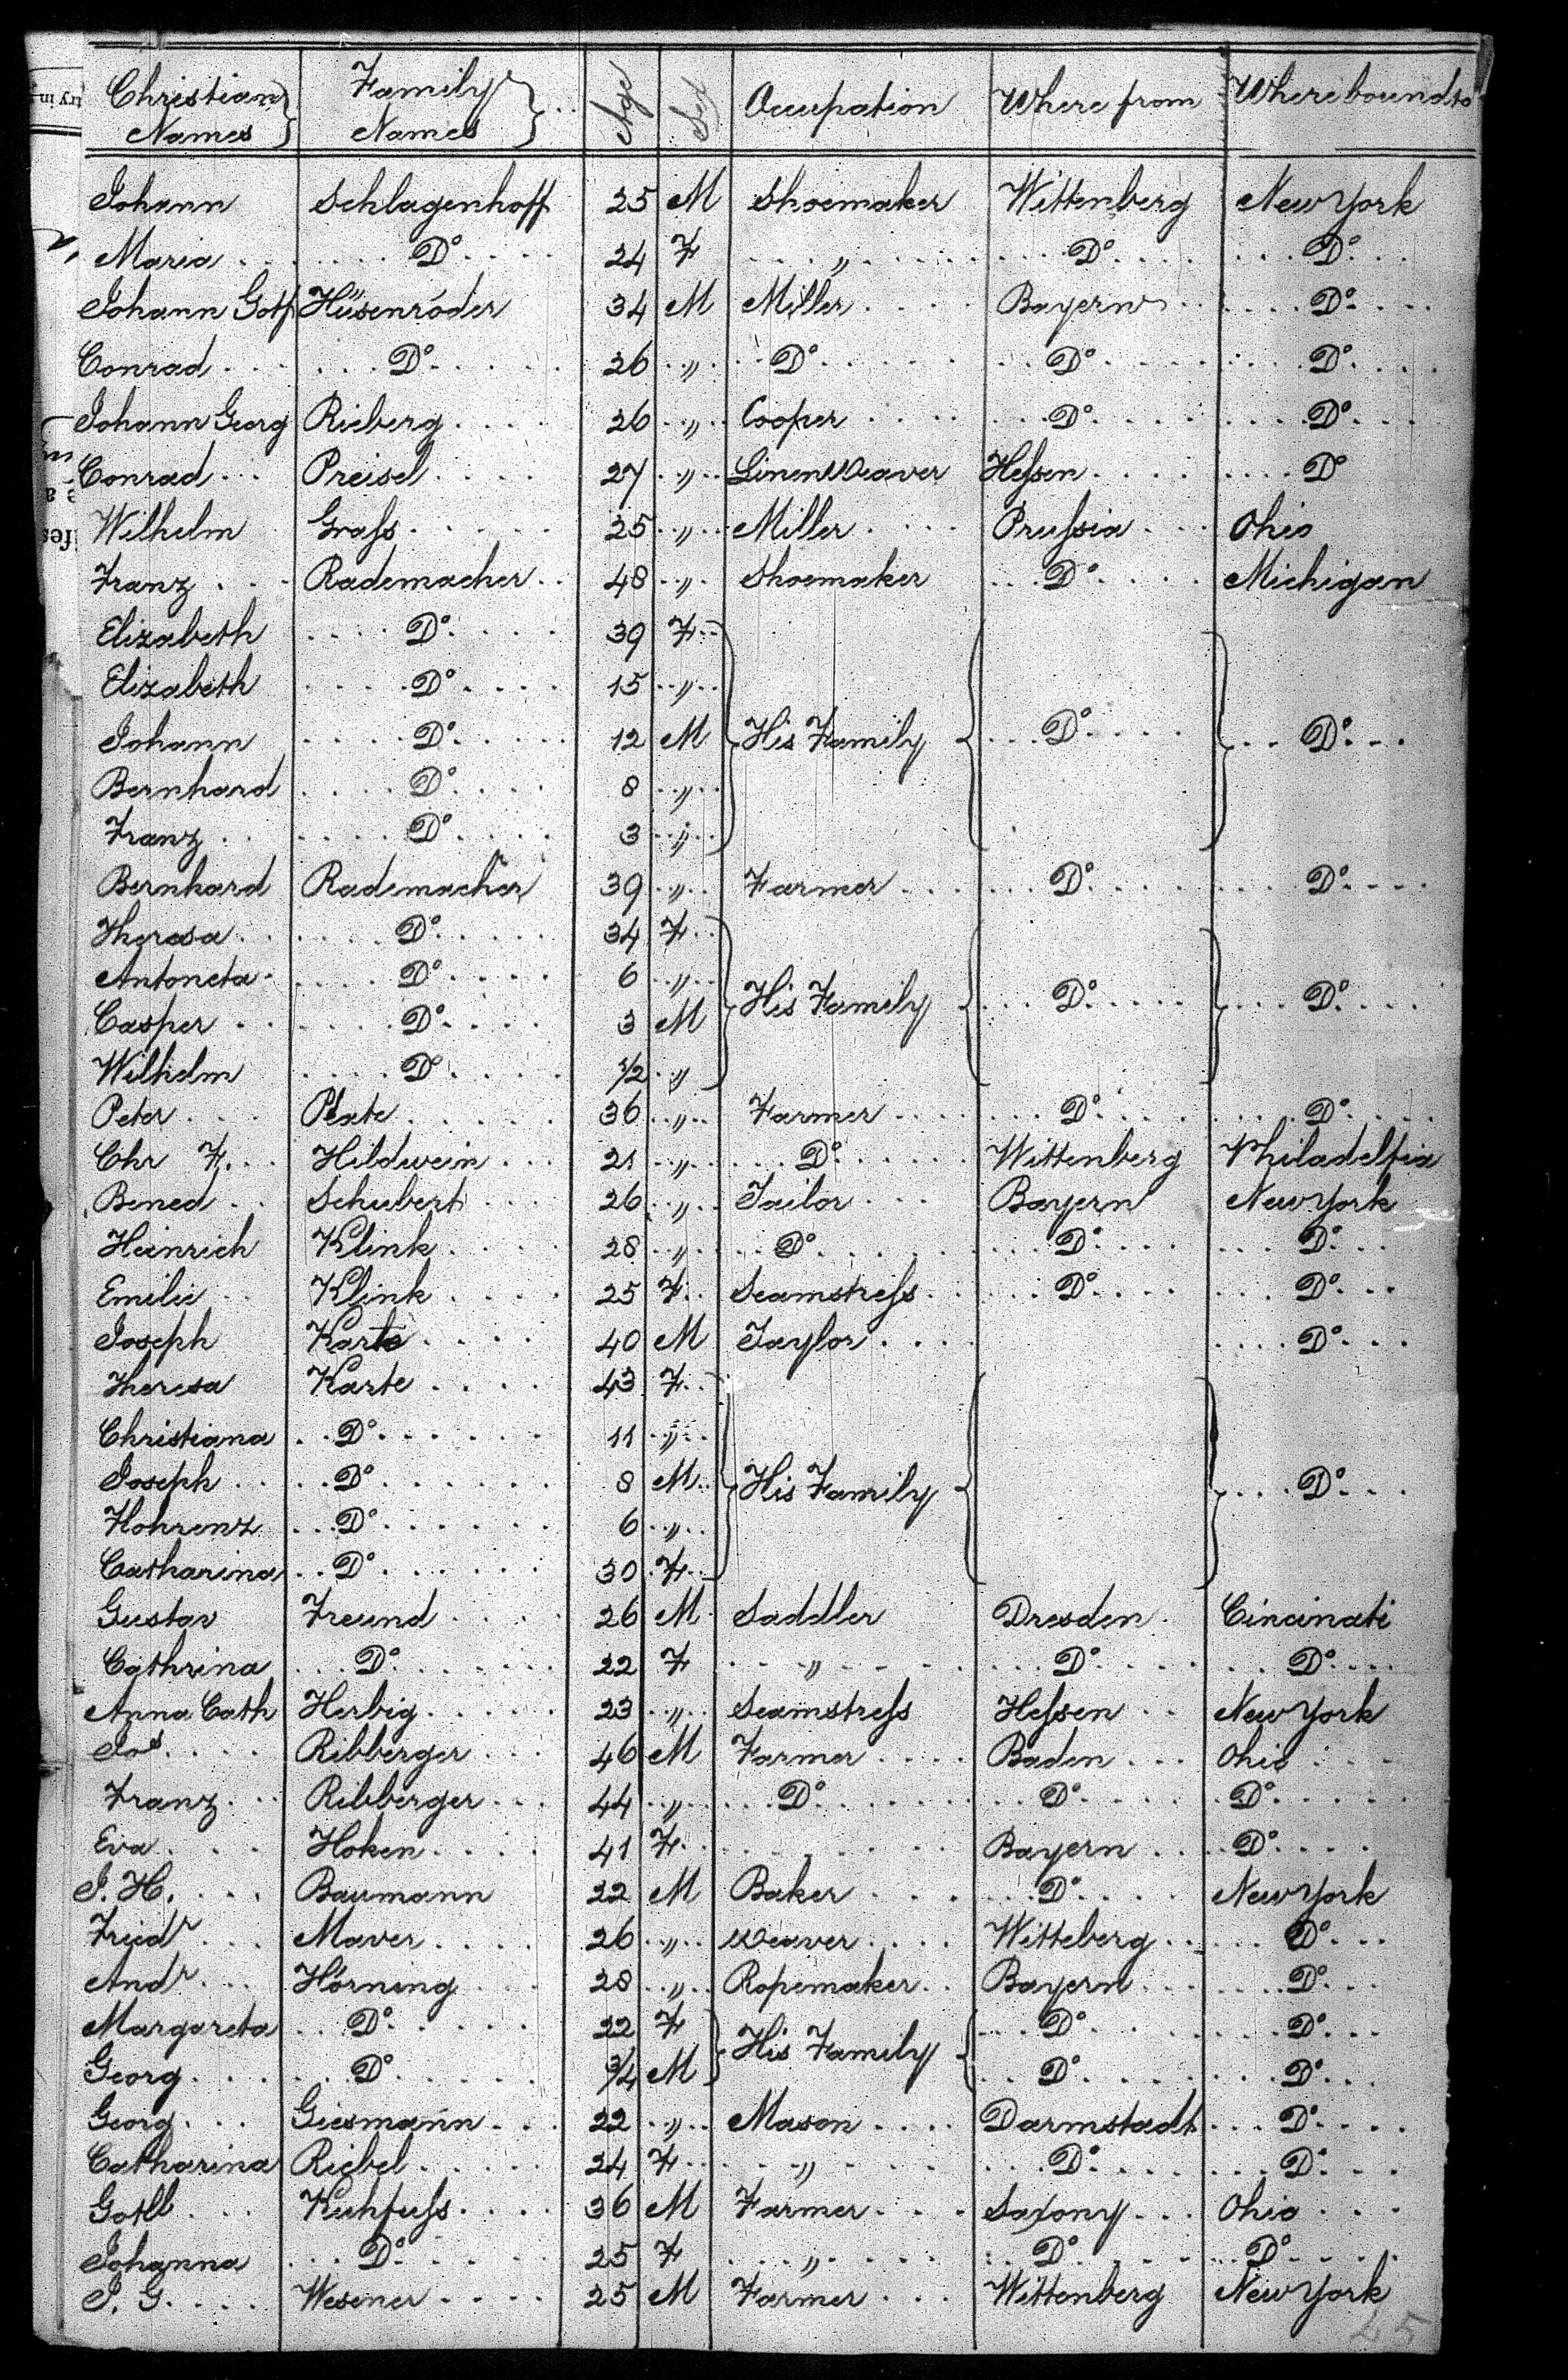 Christian Names } Family Names } Age Sex Occupation Where from Where bound to
Johann Schlagenhoff 25 M Shoemaker Wittenberg New York
Maria Do 24 F " Do Do
Johann Gotf Hüsenröder 34 M Miller Bayern Do
Conrad Do 26 " Do Do Do
Johann Georg Rieberg 26 " Cooper Do Do
Conrad Preisel 27 " Linen Weaver Hessen Do
Wilhelm Grass 25 " Miller Prussia Ohio
Franz Rademacher 48 " Shoemaker Do Michigan
Elizabeth Do 39 F
Elizabeth Do 15 "
Johann Do 12 M His Family Do Do
Bernhard Do 8 "
Franz Do 3 "
Bernhard Rademacher 39 " Farmer Do Do
Theresa Do 34 F
Antoneta Do 6 "
Casper Do 3 M His Family Do Do
Wilhelm Do 1/2 "
Peter Plate 36 " Farmer Do Do
Chr F. Hildwein 21 " Do Wittenberg Philadelfia
Bened Schubert 26 " Tailor Bayern New York
Heinrich Klink 28 " Do Do Do
Emilie Klink 25 F Seamstress Do Do
Joseph Karte 40 M Taylor Do
Theresa Karte 43 F
Christiana Do 11 "
Joseph Do 8 M His Family Do
Hohrenz Do 6 "
Catharina Do 30 F
Gustav Freund 26 M Saddler Dresden Cincinati
Cathrina Do 22 F " Do Do
Anna Cath Herbig 23 " Seamstress Hessen New York
Jos Ribberger 46 M Farmer Baden Ohio
Franz Ribberger 44 " Do Do Do
Eva Hoken 41 F Bayern Do
J. H. Baumann 22 M Baker Do New York
Friedr Maver 26 " Weaver Witteberg Do
Andr Hörning 28 " Ropemaker Bayern Do
Margareta Do 22 F His Family Do Do
Georg Do 3/4 M Do Do
Georg Giesmann 22 " Mason Darmstadt Do
Catharina Riebel 24 F " Do Do
Gotll Kuhfuss 36 M Farmer Saxony Ohio
Johanna Do 25 F " Do Do
J. G. Wesener 25 M Farmer Wittenberg New York
25